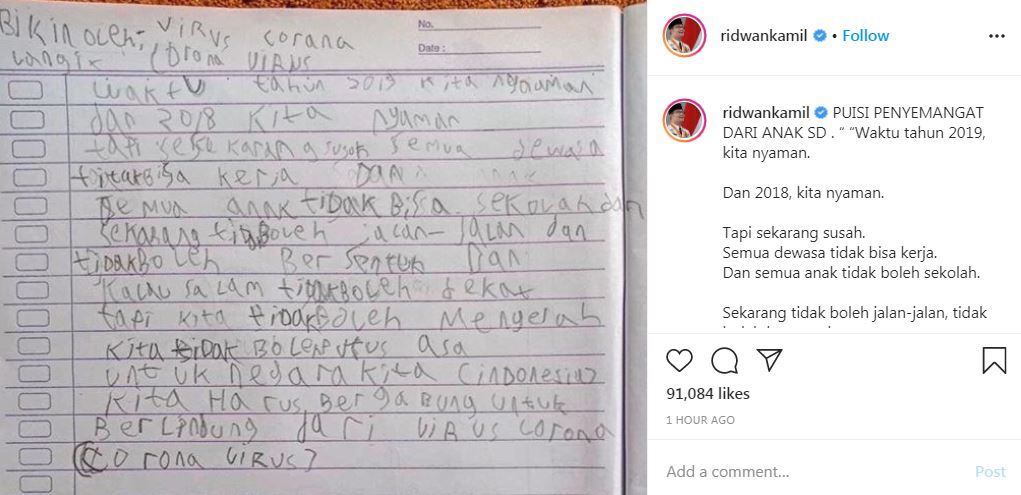 BIKIN OLEH: VIRUS corona
Langit (Orona VIRUS
No.
Date :
waktu tahun 2019 kita nyaman
dan 2018 kita nyaman
tapi sekarang susah semua dewasa
tidakBisa kerja DAN
semua anak tidak Bisa sekolah dan
sekarang tidBoleh jalan-jalan dan
tiDakBoleh Bersentuh Dan
Kalau salam tidakBoleh dekat
tapi kita tidakBoleh Mengerah
kita tidak Boleh putus asa
untuk negara kita (indonesia)
kita Harus Bergabung untuk
BerLindung dari VIRUS corona
(Corona VIRUS)
ridwankamil • Follow
ridwankamil PUISI PENYEMANGAT
DARI ANAK SD . “ “Waktu tahun 2019,
kita nyaman.
Dan 2018, kita nyaman.
Tapi sekarang susah.
Semua dewasa tidak bisa kerja.
Dan semua anak tidak boleh sekolah.
Sekarang tidak boleh jalan-jalan, tidak
91,084 likes
1 HOUR AGO
Add a comment...
Post